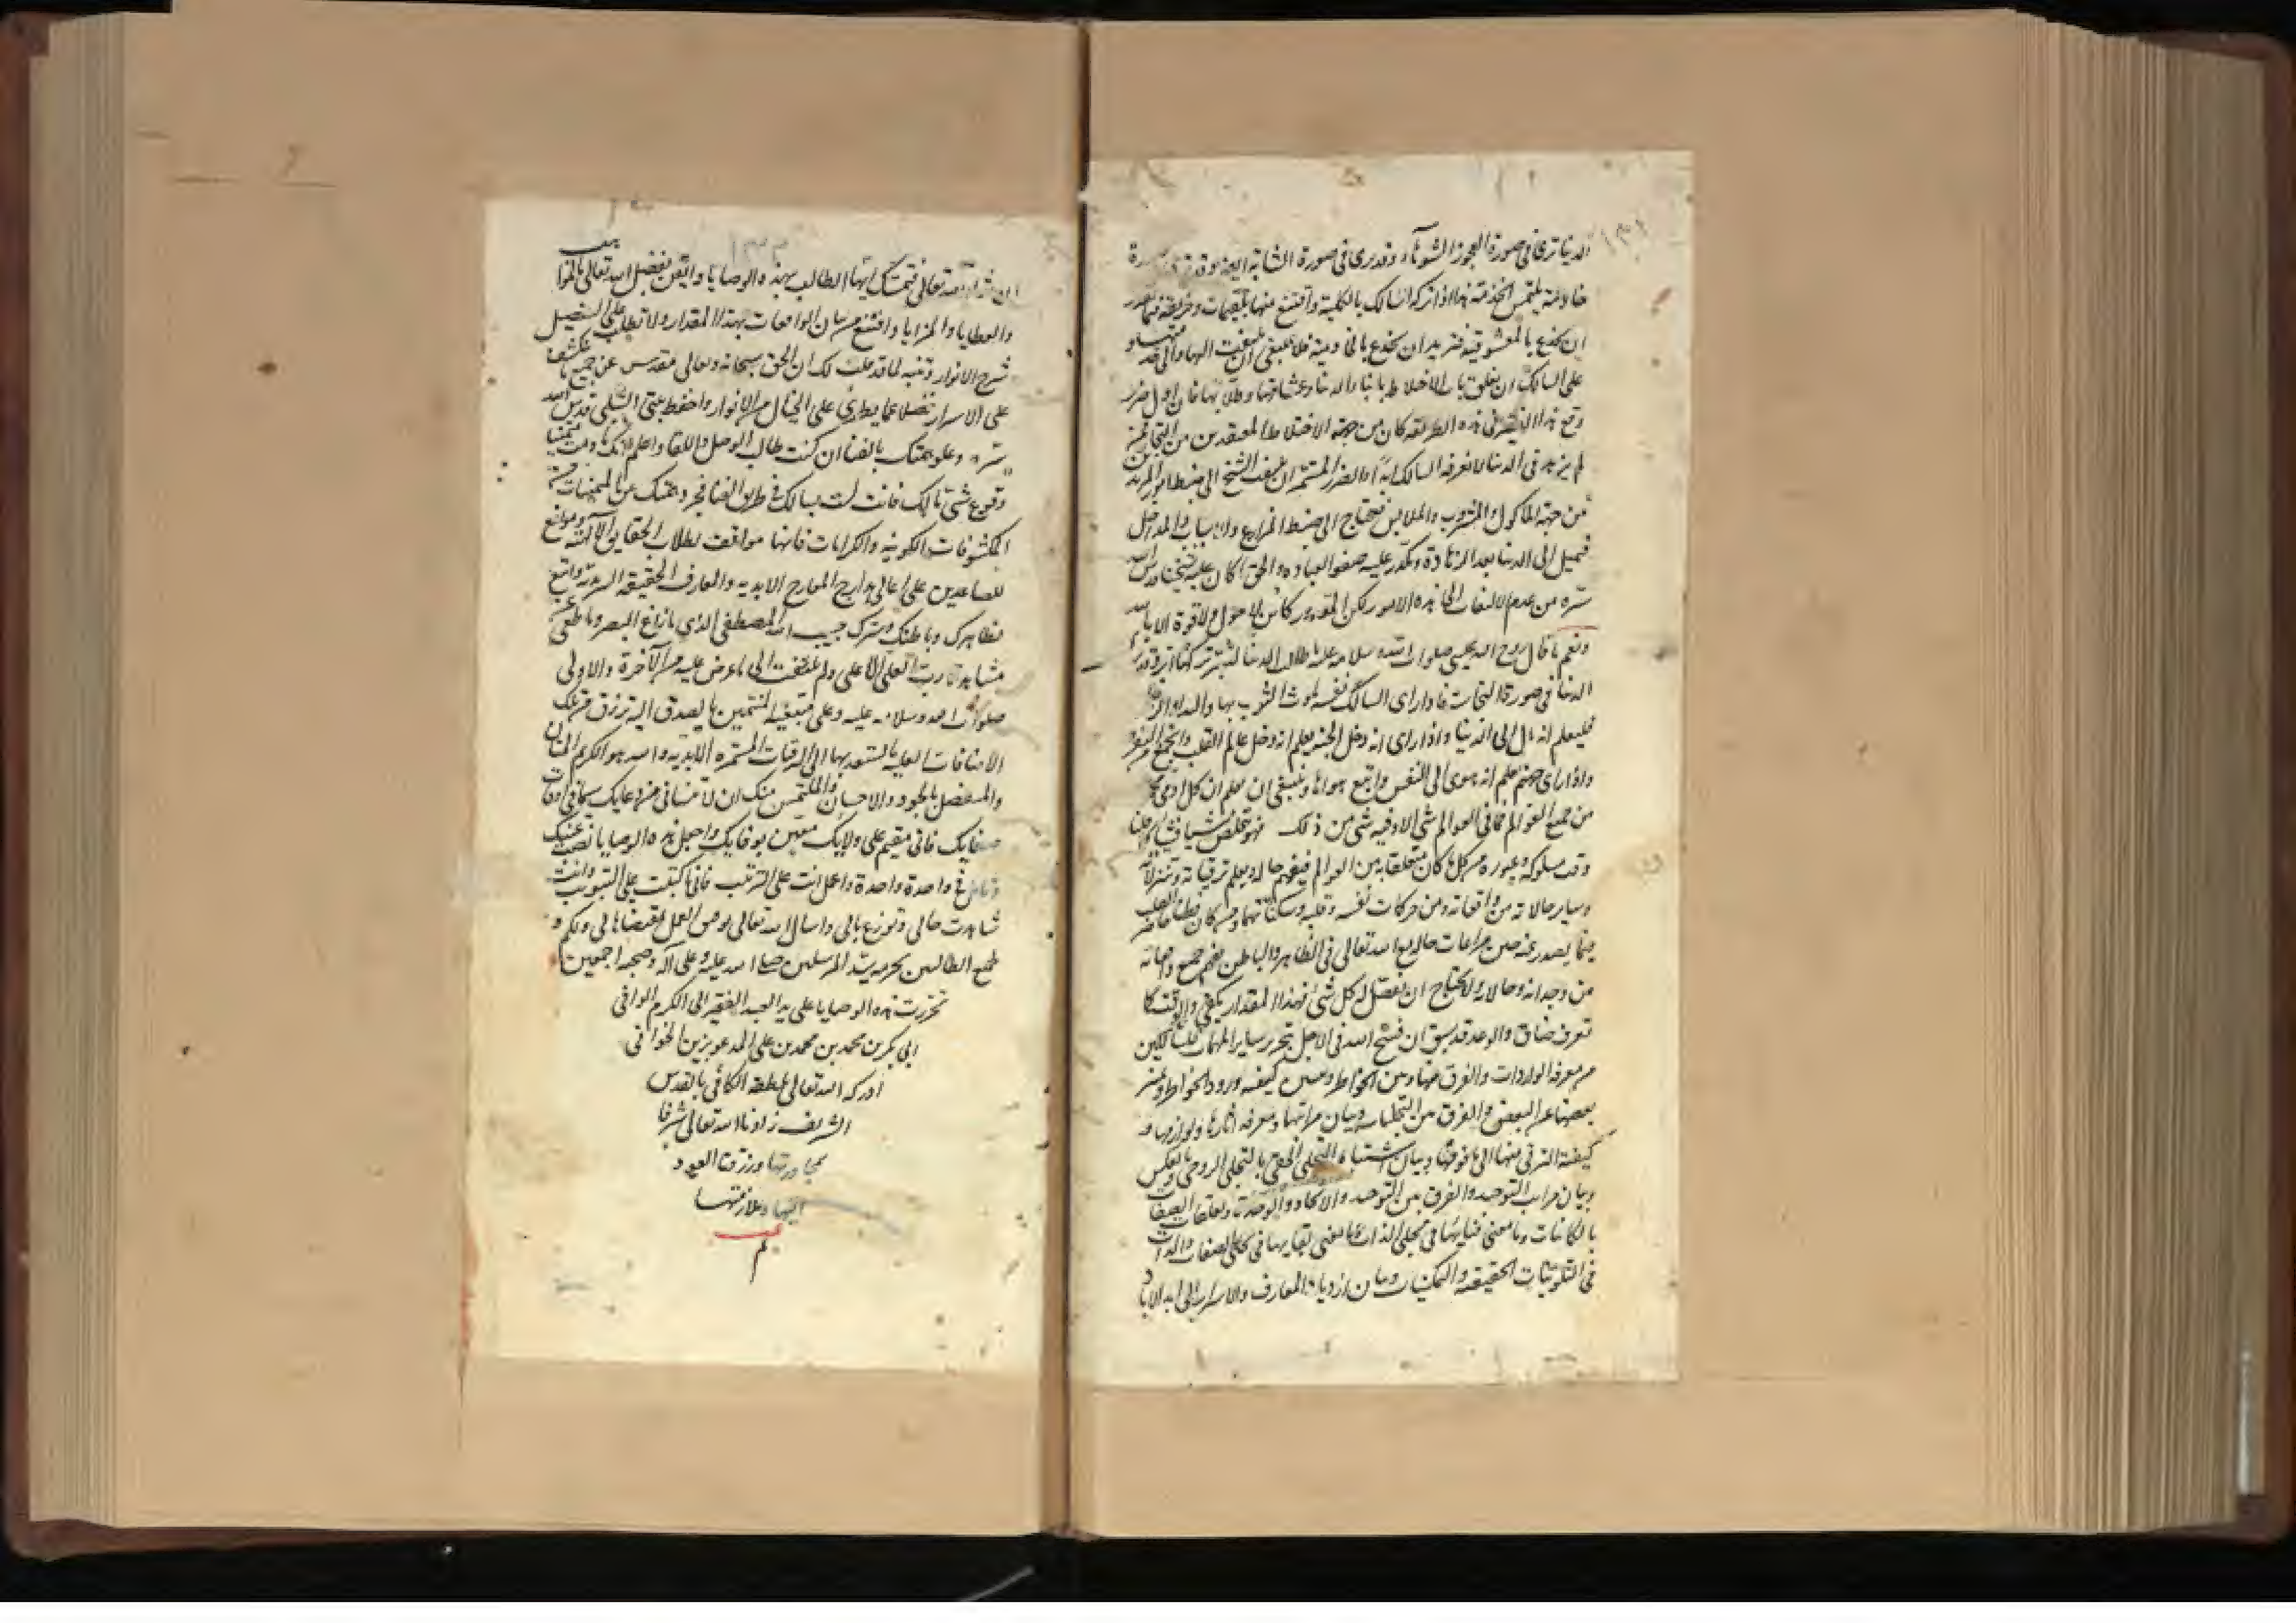 الدنيا ترى في صورة العجوز الشوهاء وقد يرى في صورة الشابة
خادمة يلتمس الخدمة هذا اذا تركه السالك بالكلية واقتنع منها بلقيمات وخريقة
ان يخدع بالمعشوقية فتريد ان يخدع بالخادمية فلا ينبغي ان يلتفت اليها
على السالك ان يغلق باب الاختلاط بابناء الدنيا وعشاقها وطلابها فان اول ضرر
وقع هذا الفقير في هذه الطريقة كان من جهة الاختلاط المعتقدين من التجار
لم يزهد في الدنيا لا يعرفه السالك ابدا والضرر المستمر ان يلتفت الشيخ الى ضبط امور المريدين
من جهة المأكول والمشروب والملابس فيحتاج الى ضبط المزارع والاسباب والمداخل
فيميل الى الدنيا بعد الزهادة ويتكدر عليه صفو العبادة والحق ما كان عليه شيخنا قدس الله
سره من عدم الالتفات الى هذه الامور لكن المقدور كائن لا حول ولا قوة الا بالله
ونعم ما قال روح الله عيسى صلوات الله وسلامه عليه يا طالب الدنيا لتبر تركها ابر وقد يرى
الدنيا في صورة النجاسات فاذا راى السالك نفسه ملوث الثوب بها
فليعلم انه مال الى الدنيا واذا راى انه دخل الجنة يعلم انه دخل عالم القلب
واذا راى جهنم علم انه هوى الى النفس واتبع هواها وينبغي ان يعلم ان كل ادمي
من جميع العوالم فما في العوالم شيء الا وفيه شيء من ذلك فهو يتخلص شيئا فشيئا
وقت سلوكه وعبوره من كل ما كان متعلقا به من العوالم فيفهم حاله ويعلم ترقياته وتنزلاته
وساير حالاته من واقعاته ومن حركات نفسه وقلبه وسكناتها ومن كان فطنا حاضر القلب
فيما يصدر عنه حين مراعات حاله مع الله تعالى في الظاهر والباطن يفهم جميع
من وجدانه وحاله ولا يحتاج ان يفصل له كل شيء فهذا المقدار يكفي والوقت كما
تعرف ضاق والوعد قد سبق ان فسح الله في الاجل بتحرير ساير المهمات للسالكين
من معرفة الواردات والفرق بينها وبين الخواطر وتبيين كيفية ورود الخواطر وتميز
بعضها عن البعض والفرق بين التجليات وبيان مراتبها ومعرفة اثارها ولوازمها
كيفية الترقي منها الى ما فوقها وبيان اشتباه التجلي الحقي بالتجلي الروحي وبالعكس
وبيان مراتب التوحيد والفرق بين التوحيد والاتحاد والوحدة وتعلقات الصفات
بالكائنات وما معنى فنايها في تجلي الذات وما معنى بقايها في تجلي الصفات والذات
في التلوينات الحقيقية والتمكينات وبيان ازدياد المعارف والاسرار الى ابد الاباد
ان شاء الله تعالى فتمسك ايها الطالب بهذه الوصايا وايقن بفضل الله تعالى بالمواهب
والعطايا والمزايا واقتنع من بيان الواقعات بهذا المقدار ولا تطلب على التفصيل
شرح الانوار وتنبه لما قد قلت لك ان الحق سبحانه وتعالى مقدس عن جميع ما يكشف
على الاسرار فضلا عما يطرى على الخيال من الانوار واحفظ بيتي الشبلي قدس الله
سره وعلو همتك بالفنا ان كنت طالب الوصل واللقا واعلم انك ما دمت متمنيا
وقوع شيء مالك فانت لست بسالك في طريق الفنا فجرد همتك عن المتمنيات حتى
المكشوفات الكونية والكرامات فانها مواقف لطلاب الحقايق الالهية وموانع
للصاعدين على اعالي مدارج المعارج الابدية والمعارف الحقيقية السرمدية واتبع
بظاهرك وباطنك وسرك حبيب الله المصطفى الذي ما زاغ البصر وما طغى
مشاهدة رب العلي الاعلى ولم يلتفت الى ما عرض عليه من الآخرة والاولى
صلوات الله وسلامه عليه وعلى متبعيه المنتمين بالصدق اليه ترزق من تلك
الاضافات العلية بالستعد بها الى الترقيات المستمرة الابدية والله هو الكريم المنان
والمتفضل بالجود والاحسان والملتمس منك ان لا تنساني من دعايك سيما في اوقات
صفايك فاني مقيم على ولايك معين بوفايك واجعل هذه الوصايا نصب عينيك
وتامل في واحدة واحدة واعمل انت على الترتيب فاني ما كتبت على التبويب وانت
شاهدت حالي وتوزع بالي واسال الله تعالى توفيق العمل بمقتضاها لي ولكم و
لجميع الطالبين بحرمة سيد المرسلين صلى الله عليه وعلى آله وصحبه اجمعين
تحررت هذه الوصايا على يد العبد الفقير الى الكرم الوافي
ابي بكر بن محمد بن محمد بن علي المدعو بزين الخوافي
ادركه الله تعالى بلطفه الكافي بالقدس
الشريف زادها الله تعالى شرفا
بمجاورتها ورزقنا العود
اليها وملازمتها
تم